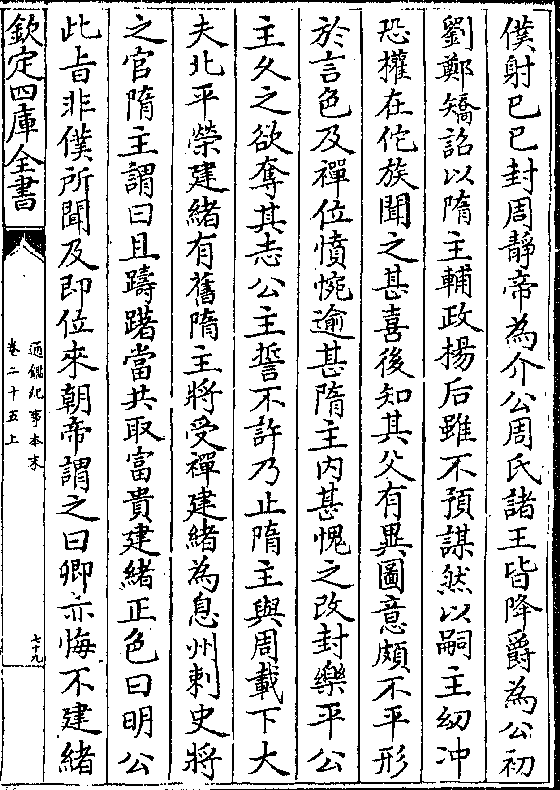 僕射己巳封周靜帝為介公周氏諸王皆降爵為公初
劉鄭矯詔以隋主輔政楊后雖不預謀然以嗣主幼冲
恐權在佗族聞之甚喜後知其父有異圖意頗不平形
於言色及禪位憤惋逾甚隋主内甚愧之改封樂平公
主久之欲奪其志公主誓不許乃止隋主與周載下大
夫北平榮建緒有舊隋主將受禪建緒為息州刺史將
之官隋主謂曰且躊躇當共取富貴建緒正色曰明公
此旨非僕所聞及即位來朝帝謂之曰卿亦悔不建緒
欽定四庫全書
通鑑紀事本末
卷二十五上
七十九